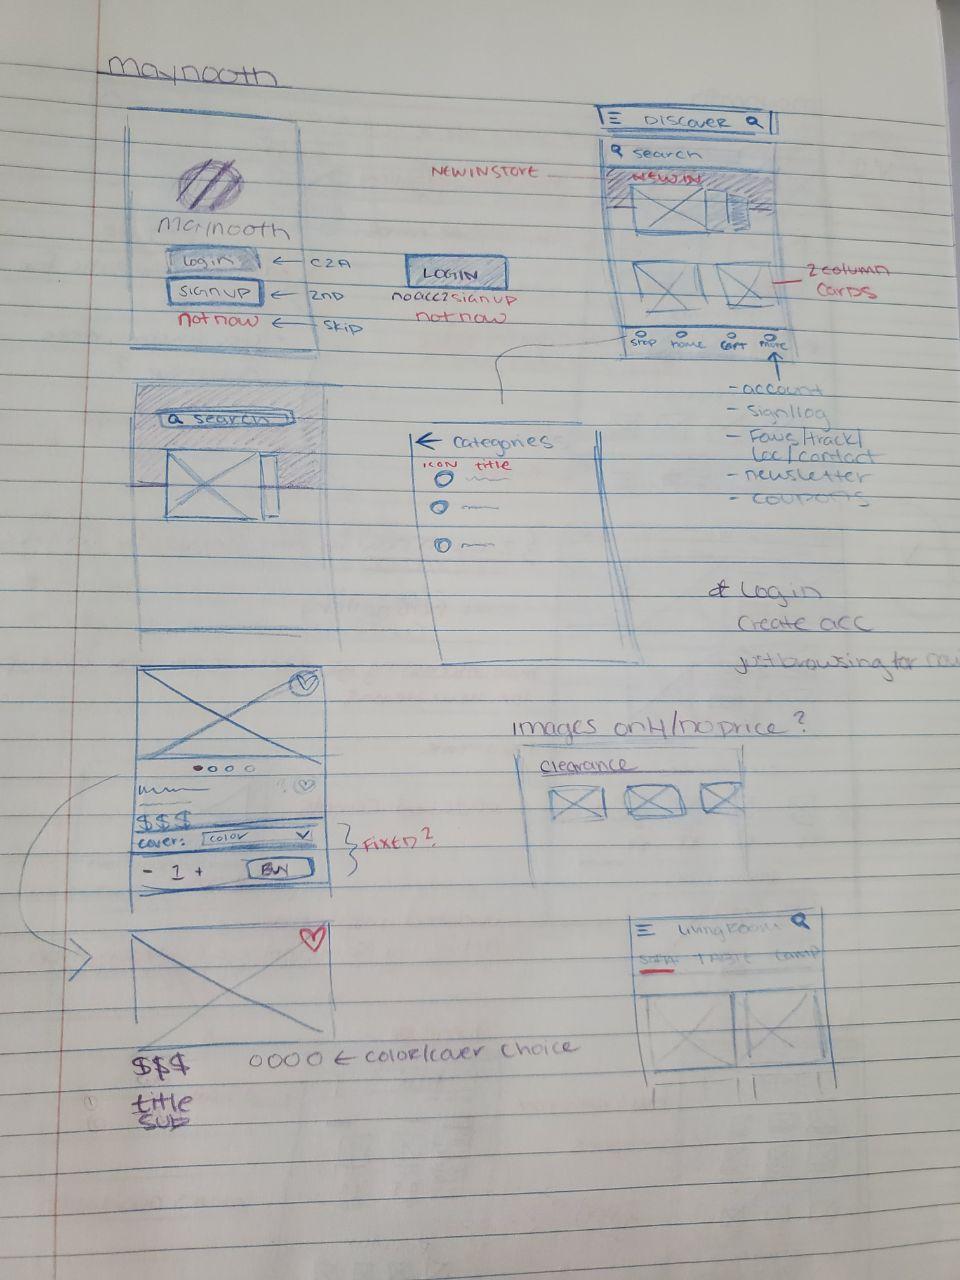 maynooth
maynooth
Login
← C2A
SIGNUP
← 2nd
not now
← SKIP
LOGIN
no acc? signup
not now
NEW IN STORE
☰ DISCOVER
search
NEW IN
2 column
cards
shop
home
cart
more
- account
- sign/log
- Favs/track/
loc/contact
- newsletter
- coupons
search
← categories
ICON title
* Login
create acc
just browsing for now
$$$
cover:
color
- 1 +
BUY
FIXED?
images only/no price?
clearance
$$$
0000 ← color/cover choice
title
SUB
☰ Living Room
SOFA TABLE Lamp